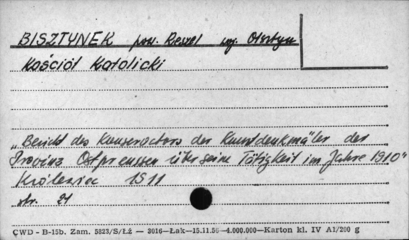 BISZTYNEK pow. Reszel woj. Olsztyn
Kościół Katolicki
„Bericht des Konservators der Kunstdenkmäler der
Provinz Ostpreussen über seine Tätigkeit im Jahre 1910"
Królewiec 1911
str. 21
ÇWD - B-15b. Zam. 5823/S/Łż — 3016—Łak—15.11.56—4.000.000—Karton kl. IV A1/200 g